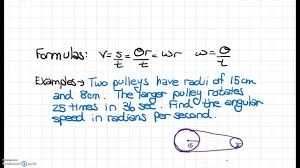 Formulas: v = s/t = θr/t = ωr ω = θ/t
Examples → Two pulleys have radii of 15cm
and 8cm. The larger pulley rotates
25 times in 36 sec. Find the angular
speed in radians per second.
15 8